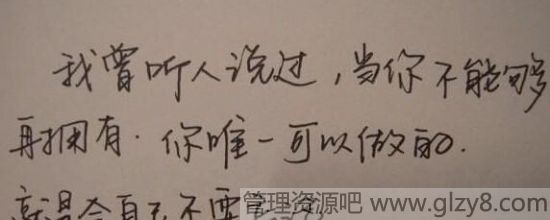 我曾听人说过，当你不能够
再拥有．你唯一可以做的．
就是令自己不要
管理资源吧 www.glzy8.com